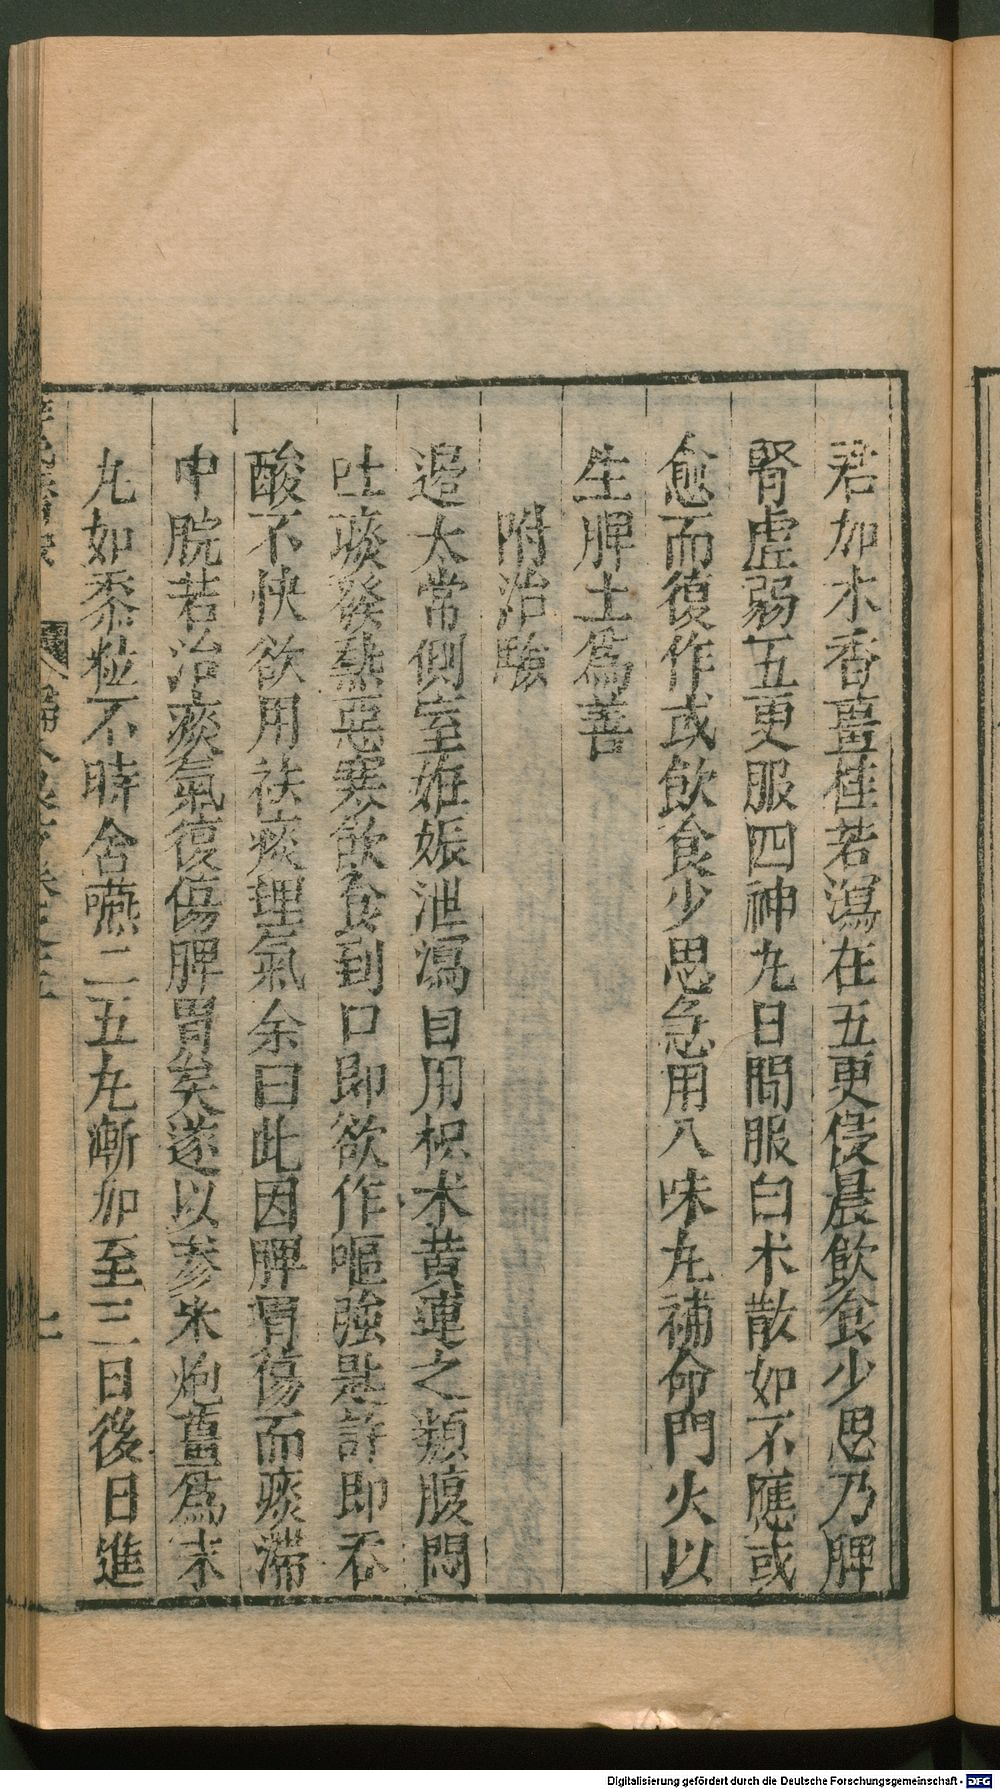 君加木香薑桂若瀉在五更侵晨飲食少思乃脾
腎虛弱五更服四神丸日間服白朮散如不應或
愈而復作或飲食少思急用八味丸補命門火以
生脾土爲善
附治驗
邊太常側室姙娠泄瀉自用枳朮黄連之類腹悶
吐痰發熱惡寒飲食到口即欲作嘔強匙許即吞
酸不快欲用祛痰理氣余曰此因脾胃傷而痰滯
中脘若治痰氣復傷脾胃矣遂以參朮炮薑爲末
丸如黍粒不時含嚥二五丸漸加至三日後日進
Digitalisierung gefördert durch die Deutsche Forschungsgemeinschaft - DFG